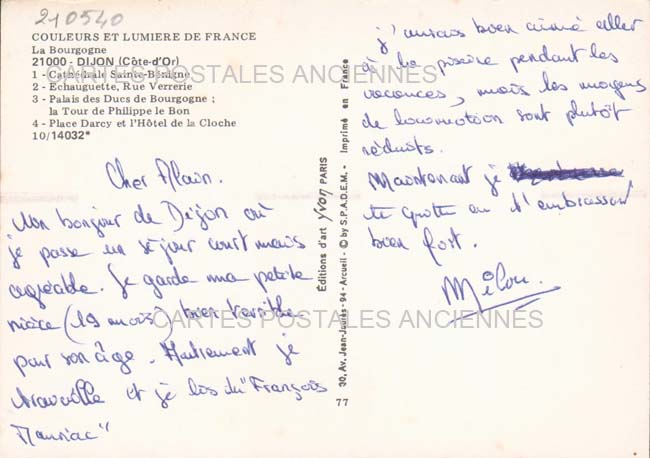 210540
COULEURS ET LUMIERE DE FRANCE
La Bourgogne
21000 - DIJON (Côte-d'Or)
1 - Cathédrale Sainte-Bénigne
2 - Echauguette, Rue Verrerie
3 - Palais des Ducs de Bourgogne ;
la Tour de Philippe le Bon
4 - Place Darcy et l'Hôtel de la Cloche
10/14032*
CARTES POSTALES ANCIENNES
Cher Alain.
Mon bonjour de Dijon où
je passe un séjour court mais
agréable. Je garde ma petite
nièce (19 mois) bien terrible
pour son âge. Autrement je
travaille et je lis du "François
Mauriac"
Editions d'art yvon PARIS
30, Av. Jean-Jaurès - 94 - Arcueil - © by S.P.A.D.E.M. - Imprimé en France
77
j'aurais bien aimé aller
à la piscine pendant les
vacances, mais les moyens
de locomotion sont plutôt
réduits.
Maintenant je
te quitte en t'embrassant
bien fort.
Milou.
CARTES POSTALES ANCIENNES